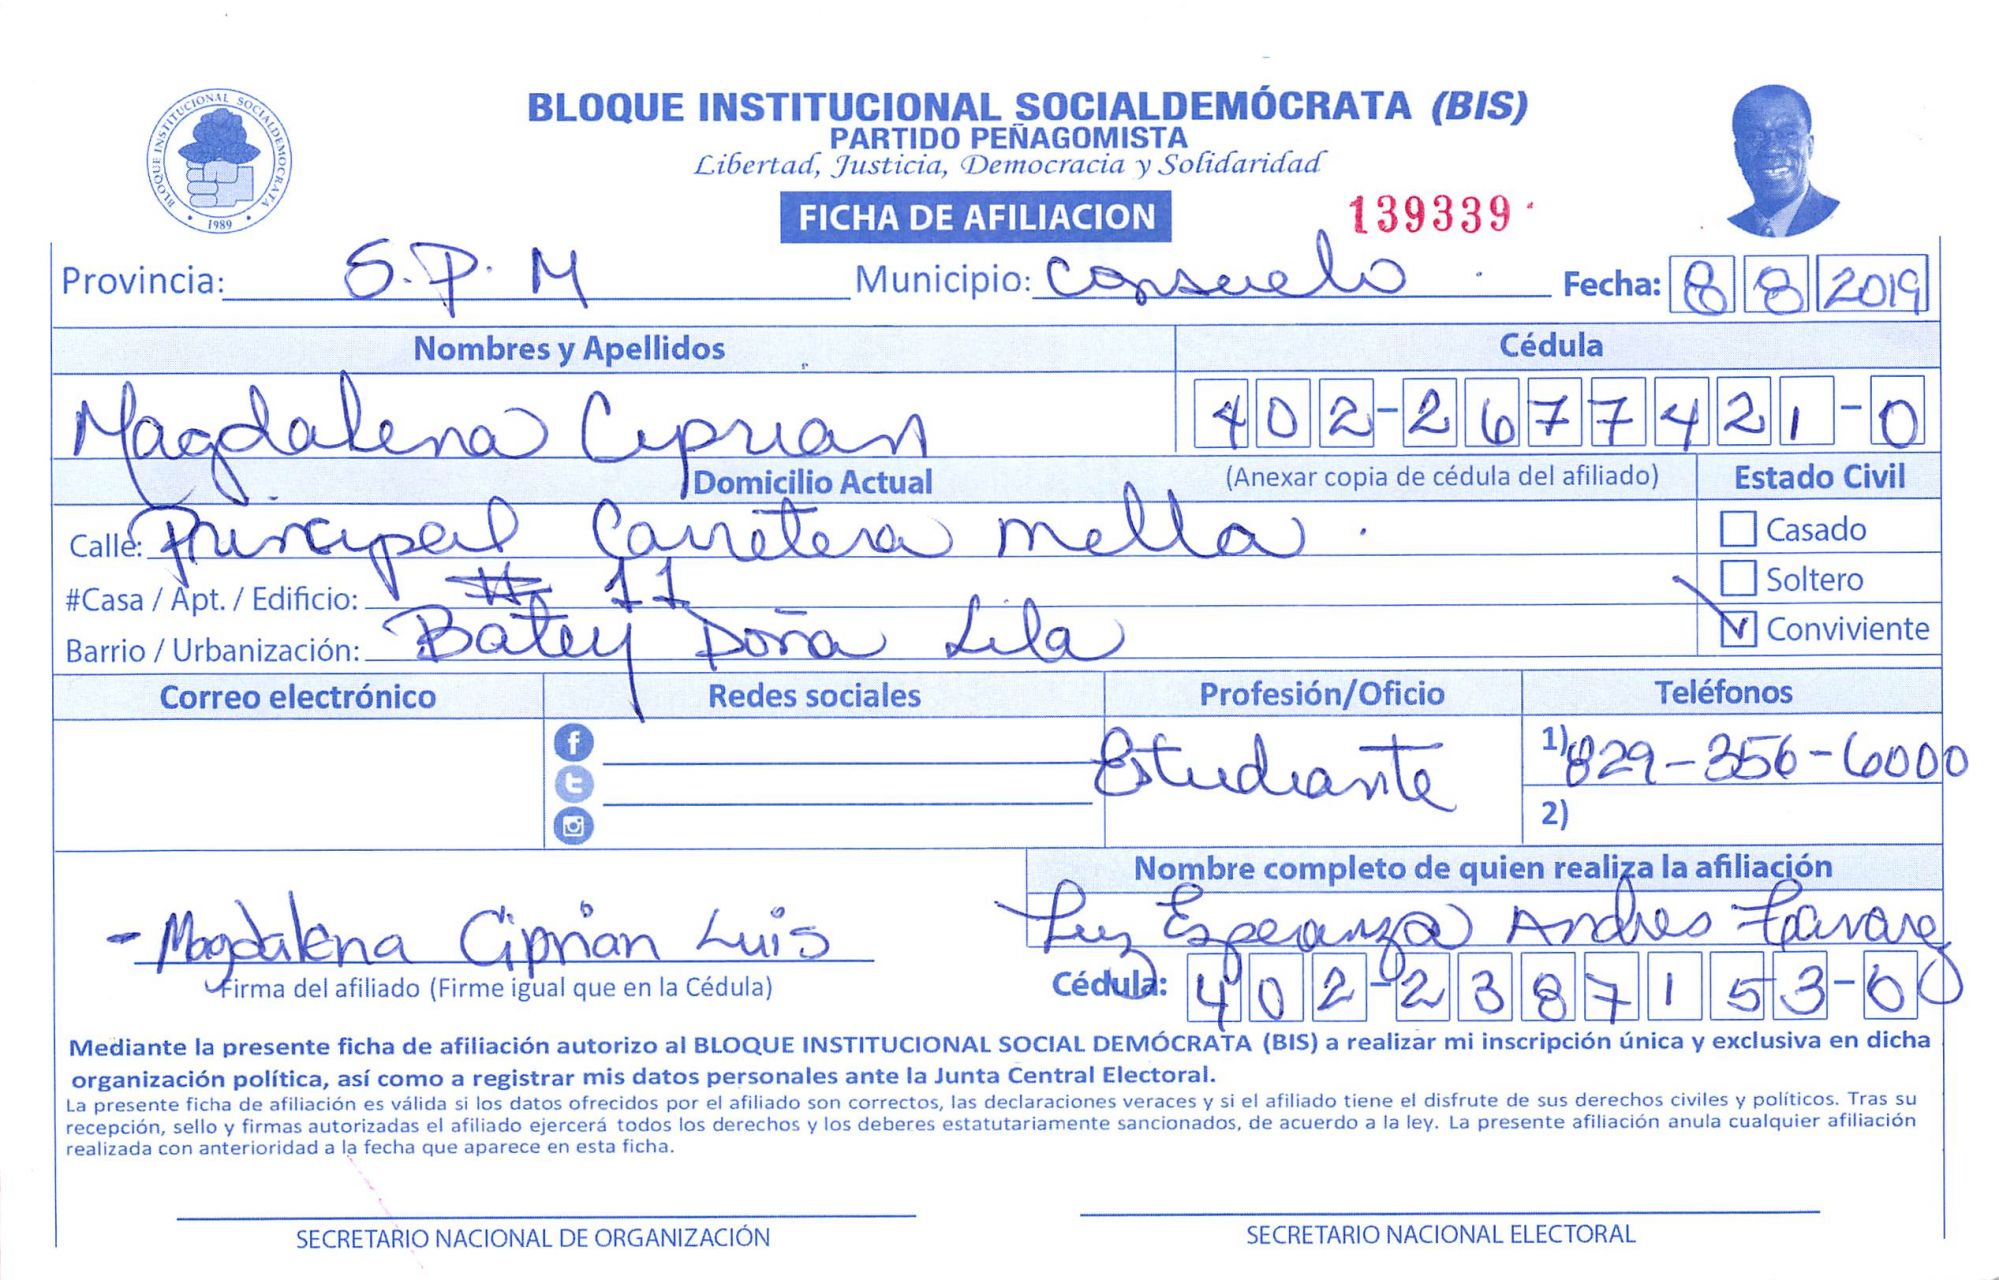 BLOQUE INSTITUCIONAL SOCIALDEMÓCRATA
1989
BLOQUE INSTITUCIONAL SOCIALDEMÓCRATA (BIS)
PARTIDO PEÑAGOMISTA
Libertad, Justicia, Democracia y Solidaridad
FICHA DE AFILIACION 139339
Provincia: S.P.M Municipio: Consuelo Fecha: 8 8 2019
Nombres y Apellidos Cédula
Magdalena Ciprian 402-2677421-0
Domicilio Actual (Anexar copia de cédula del afiliado) Estado Civil
Calle: Principal Carretera mella. Casado
#Casa / Apt. / Edificio: # 11 Soltero
Barrio / Urbanización: Batey Doña Lila Conviviente
Correo electrónico Redes sociales Profesión/Oficio Teléfonos
Estudiante 1) 829-356-6000
2)
Nombre completo de quien realiza la afiliación
- Magdalena Ciprian Luis Luz Esperanza Andres Tavarez
Firma del afiliado (Firme igual que en la Cédula) Cédula: 402-2387153-0
Mediante la presente ficha de afiliación autorizo al BLOQUE INSTITUCIONAL SOCIAL DEMÓCRATA (BIS) a realizar mi inscripción única y exclusiva en dicha
organización política, así como a registrar mis datos personales ante la Junta Central Electoral.
La presente ficha de afiliación es válida si los datos ofrecidos por el afiliado son correctos, las declaraciones veraces y si el afiliado tiene el disfrute de sus derechos civiles y políticos. Tras su
recepción, sello y firmas autorizadas el afiliado ejercerá todos los derechos y los deberes estatutariamente sancionados, de acuerdo a la ley. La presente afiliación anula cualquier afiliación
realizada con anterioridad a la fecha que aparece en esta ficha.
SECRETARIO NACIONAL DE ORGANIZACIÓN SECRETARIO NACIONAL ELECTORAL